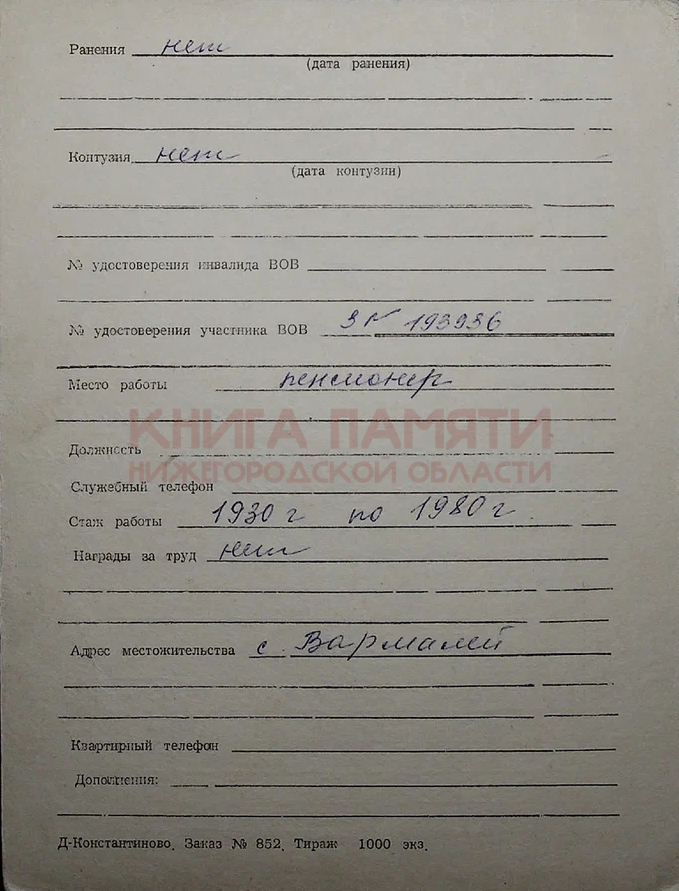 Ранения нет
(дата ранения)
Контузия нет
(дата контузии)
№ удостоверения инвалида ВОВ
№ удостоверения участника ВОВ 3 Г 193936
Место работы пенсионер
КНИГА ПАМЯТИ
Должность
НИЖЕГОРОДСКОЙ ОБЛАСТИ
Служебный телефон
Стаж работы 1930 г по 1980 г.
Награды за труд нет
Адрес местожительства с. Вармалей
Квартирный телефон
Дополнения:
Д-Константиново. Заказ № 852. Тираж 1000 экз.